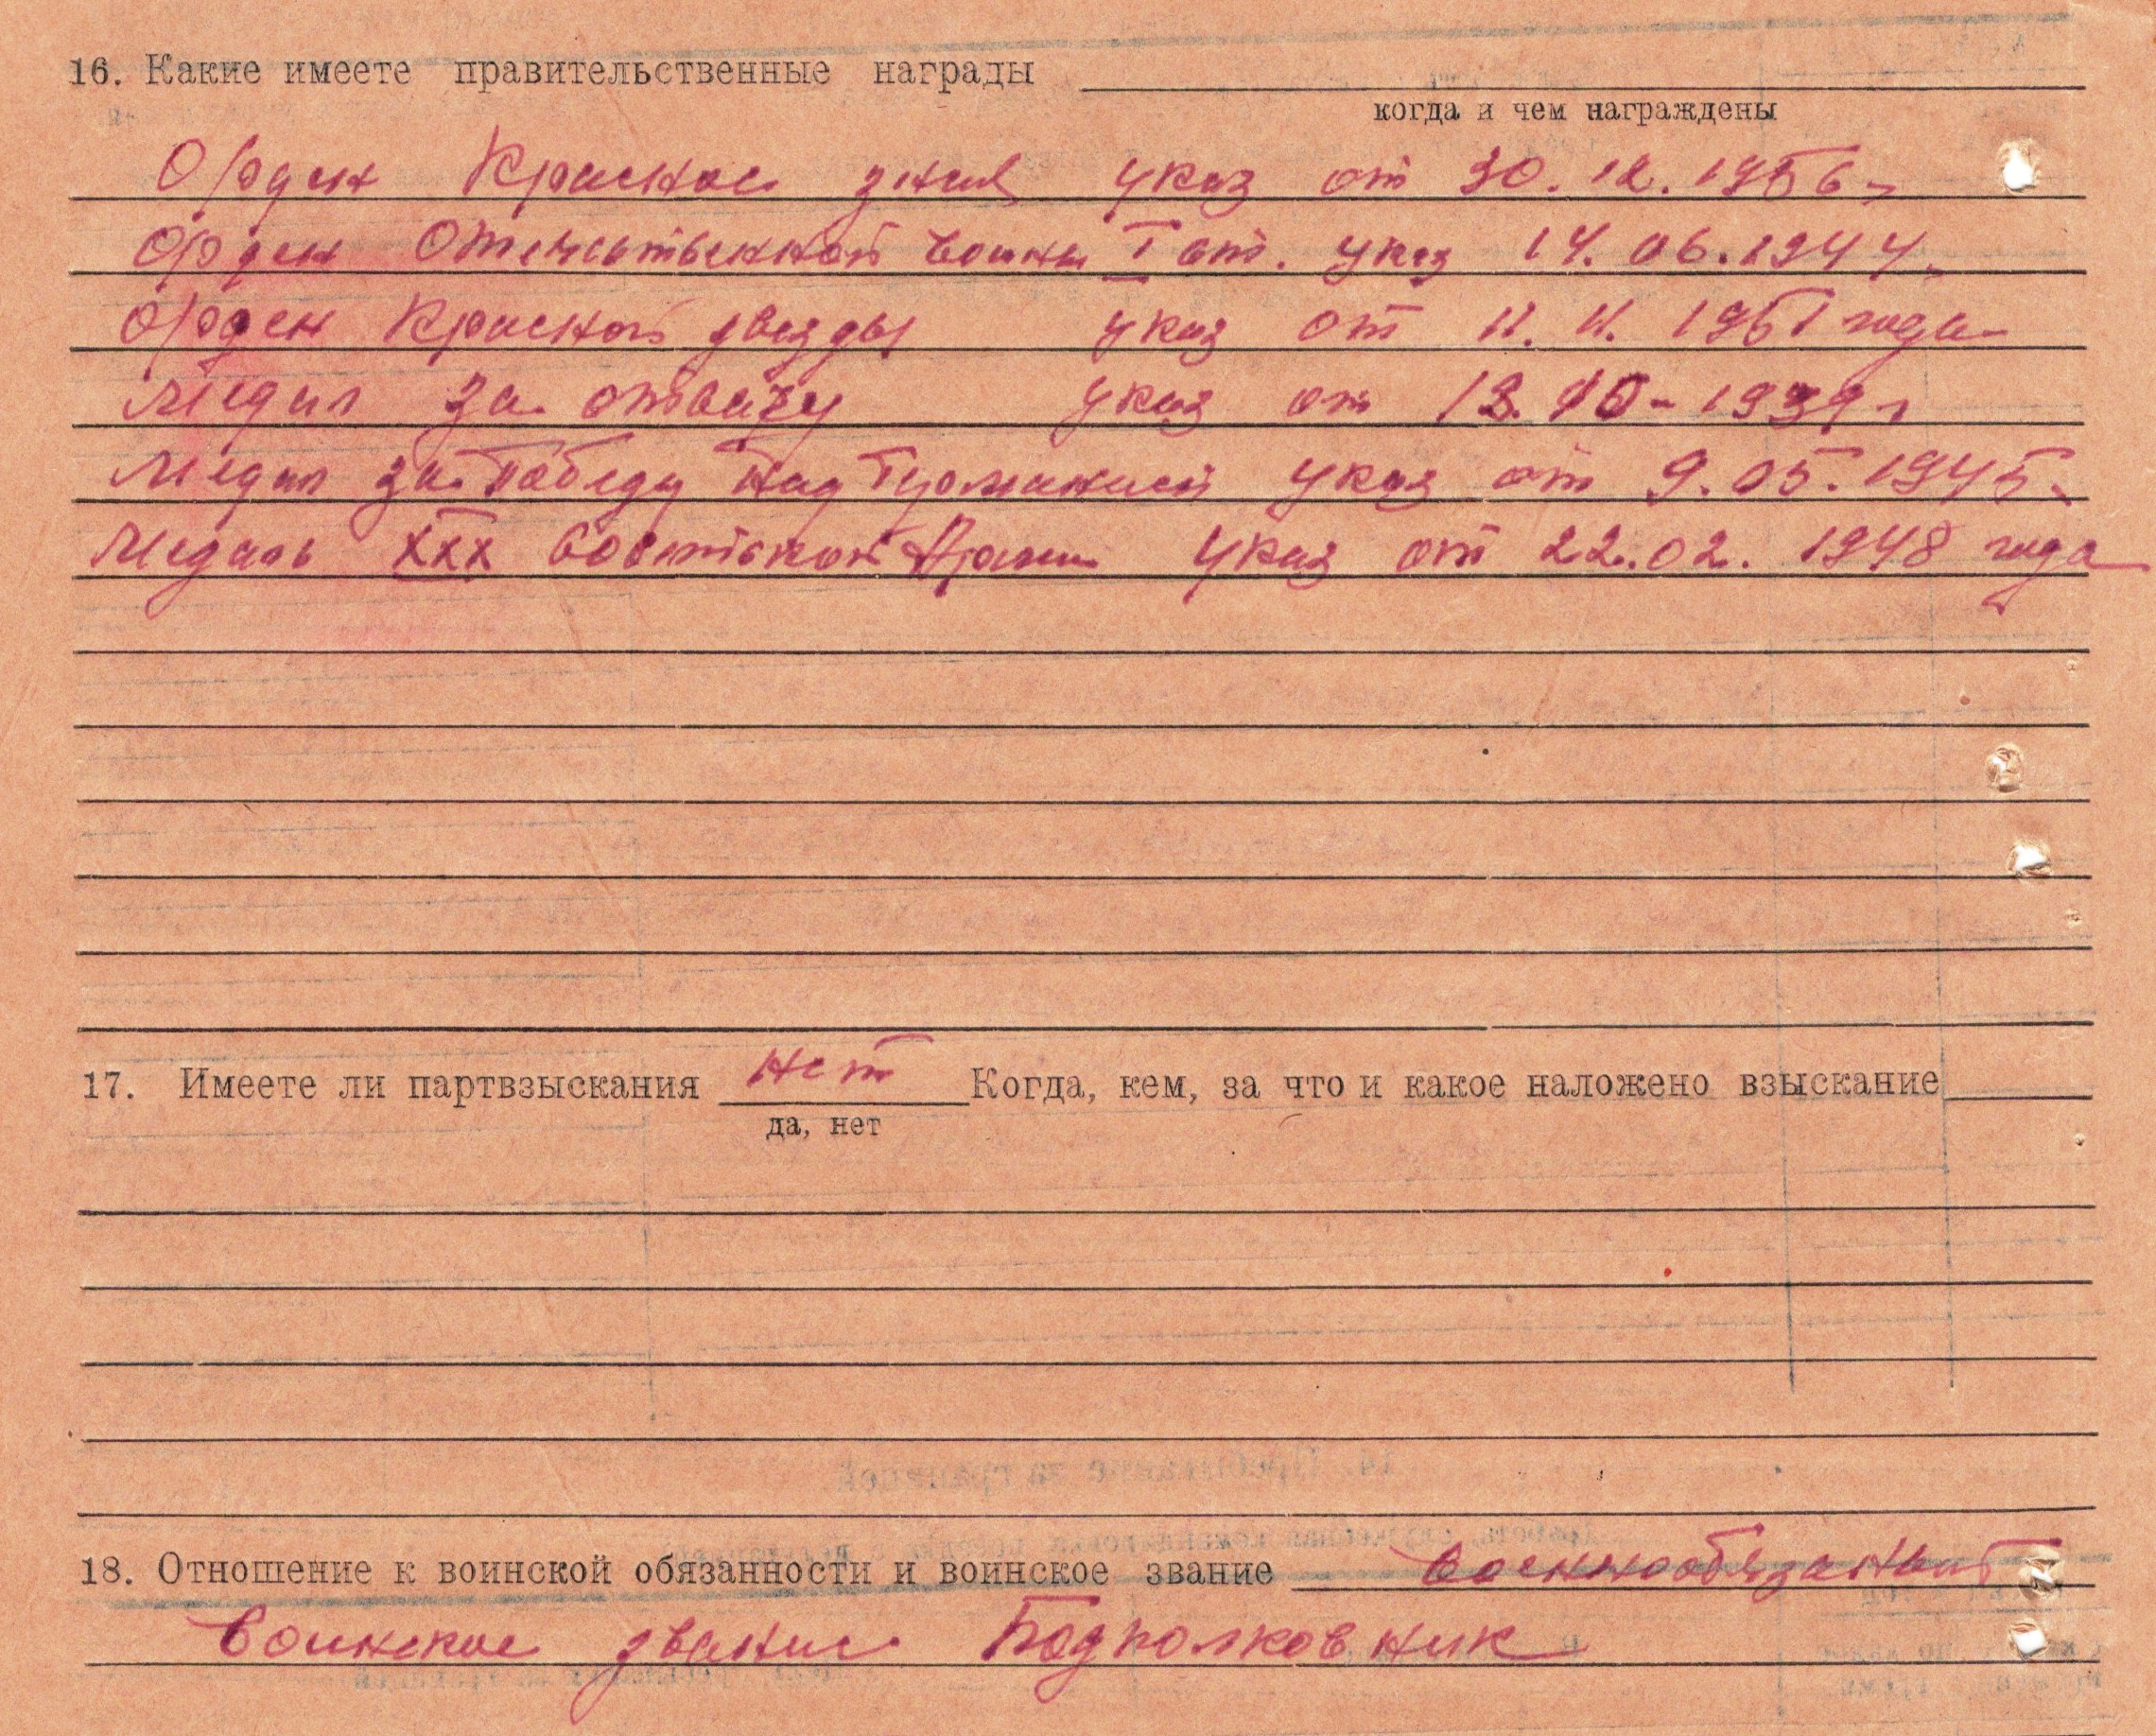 16. Какие имеете правительственные награды
когда и чем награждены
Орден Красное знам указ от 30.12.1956г
Орден Отечественной войны I ст. указ 14.06.1944г
Орден Красной звезды указ от 11.11.1951 года
Медал за отвагу указ от 13.10-1939г
Медал за победу над Германией указ от 9.05.1945г
Медаль XXX советской Армии указ от 22.02.1948 года
17. Имеете ли партвзыскания нет Когда, кем, за что и какое наложено взыскание
да, нет
18. Отношение к воинской обязанности и воинское звание военнообязаный
Воинское звание Подполковник